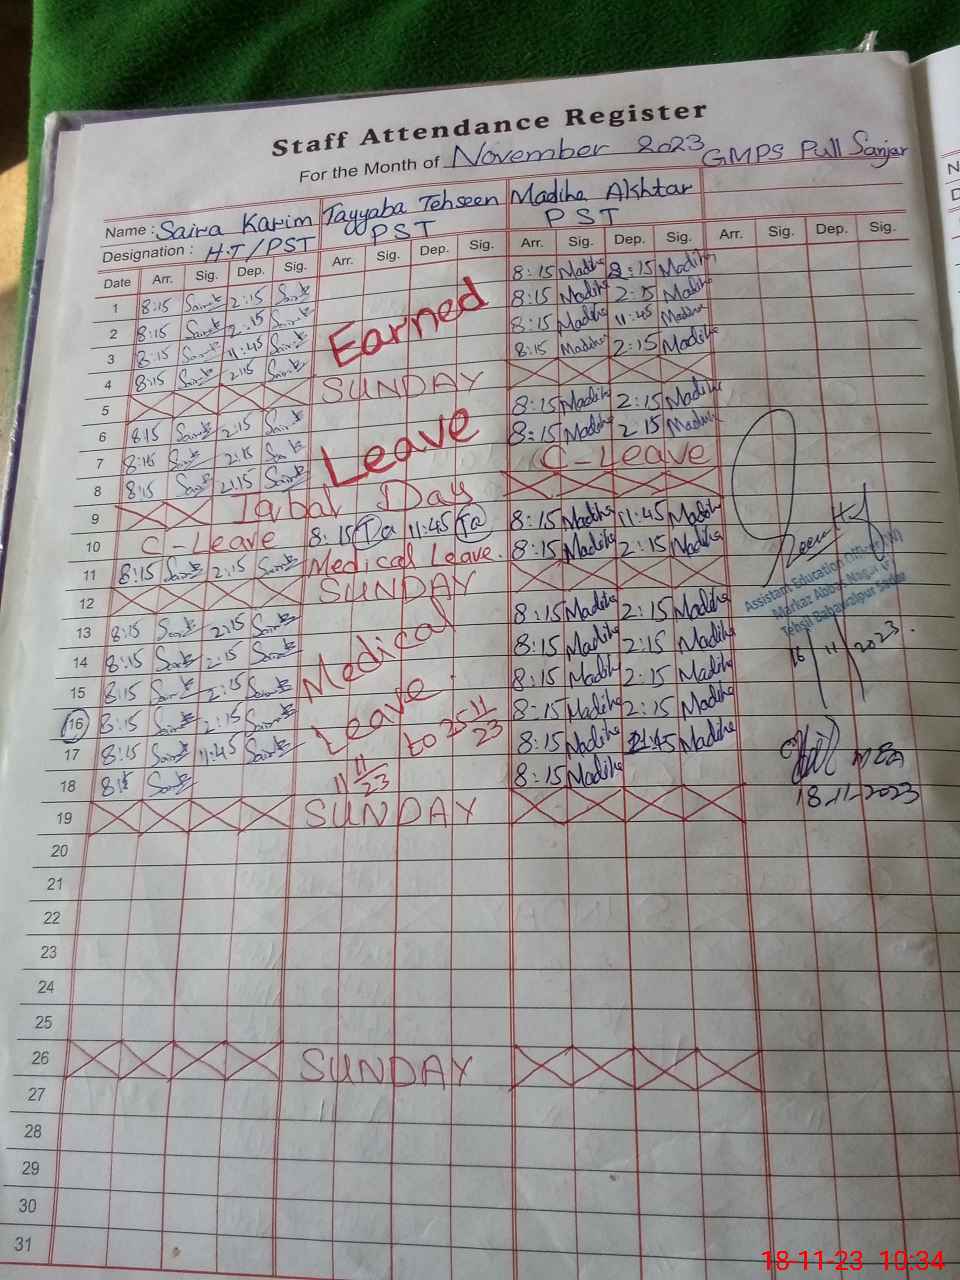 Staff Attendance Register
For the Month of November 2023 GMPS Pull Sanjar
Name : Saira Karim Tayyaba Tehseen Madiha Akhtar
Designation : H.T/PST PST PST
Date Arr. Sig. Dep. Sig. Arr. Sig. Dep. Sig. Arr. Sig. Dep. Sig. Arr. Sig. Dep. Sig.
1 8:15 Saira 2:15 Saira 8:15 Madiha 2:15 Madiha
2 8:15 Saira 2:15 Saira Earned 8:15 Madiha 2:15 Madiha
3 8:15 Saira 11:45 Saira 8:15 Madiha 11:45 Madiha
4 8:15 Saira 2:15 Saira 8:15 Madiha 2:15 Madiha
5 SUNDAY
6 8:15 Saira 2:15 Saira 8:15 Madiha 2:15 Madiha
7 8:15 Saira 2:15 Saira Leave 8:15 Madiha 2:15 Madiha
8 8:15 Saira 2:15 Saira C-Leave
9 Iqbal Day
10 C-Leave 8:15 Ta 11:45 Ta 8:15 Madiha 11:45 Madiha
11 8:15 Saira 2:15 Saira Medical Leave. 8:15 Madiha 2:15 Madiha
12 SUNDAY
13 8:15 Saira 2:15 Saira 8:15 Madiha 2:15 Madiha
14 8:15 Saira 2:15 Saira Medical 8:15 Madiha 2:15 Madiha
15 8:15 Saira 2:15 Saira 8:15 Madiha 2:15 Madiha
16 8:15 Saira 2:15 Saira Leave. 8:15 Madiha 2:15 Madiha
17 8:15 Saira 11:45 Saira 11/11/23 to 25/11/23 8:15 Madiha 11:45 Madiha
18 8:15 Saira 8:15 Madiha
19 SUNDAY
20
21
22
23
24
25
26 SUNDAY
27
28
29
30
31
Assistant Education Officer (W)
Markaz Abbas Nagar
Tehsil Bahawalpur Sadar
16/11/2023.
MEA
18-11-2023
18-11-23 10:34